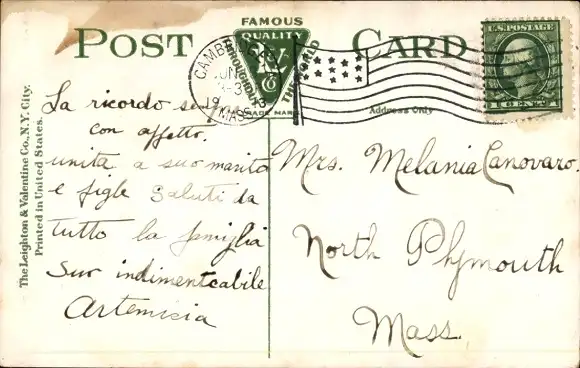 POST CARD
FAMOUS
QUALITY
THROUGHOUT THE WORLD
TRADE MARK
CAMBRIDGE
JUN
19 13
MASS.
U.S. POSTAGE
1 CENT 1
Address Only
The Leighton & Valentine Co., N.Y. City.
Printed in United States.
La ricordo
con affetto.
unita a suo marito
e figle saluti da
tutto la famiglia
Sur indimenteabile
Artemisia
Mrs. Melania Canovaro.
North Plymouth
Mass.